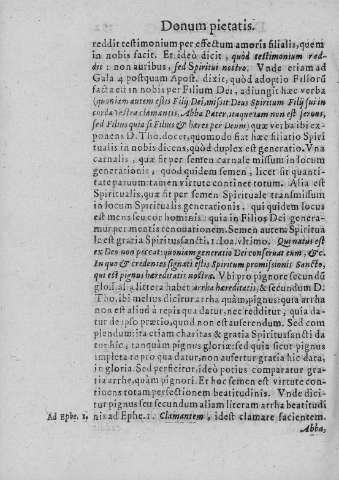 Donum pietatis.
reddit testimonium per effectum amoris filialis, quem
in nobis facit. Et ideò dicit, quòd testimonium red-
dit: non auribus, sed Spiritui nostro. Vnde etiam ad
Gala 4 postquam Apost. dixit, quòd adoptio Filiorũ
facta est in nobis per Filium Dei, adiungit hæc verba
(quoniam autem estis Filij Dei, misit Deus Spiritum Filij sui in
corda vestra clamantis, Abba Pater, itaque iam non est seruus,
sed Filius quia si Filius & hæres per Deum) quæ verba ibi ex-
ponens D. Tho. docet, quomodo fiat hæc filiatio Spiri
tualis in nobis dicens, quòd duplex est generatio. Vna
carnalis, quæ fit per semen carnale missum in locum
generationis, quod quidem semen, licet sit quanti-
tate paruum: tamen virtute continet totum. Alia est
Spiritualis, quæ fit per semen Spirituale transmissum
in locum Spiritualis generationis, qui quidem locus
est mens seu cor hominis: quia in Filios Dei genera-
mur per mentis renouationem. Semen autem Spiritua
le est gratia Spiritus sancti, 1. Ioa. vltimo. Qui natus est
ex Deo non peccat: quoniam generatio Dei conseruat eum, &c.
In quo & credentes signati estis Spiritum promissionis Sancto,
qui est pignus hæreditatis nostræ. Vbi pro pignore secundũ
glos. alia littera habet arrha hæreditatis, & secundum D.
Tho. ibi melius dicitur arrha quàm, pignus: quia arrha
non est aliud à re pro qua datur, nec redditur, quia da-
tur de ipso prætio, quod non est auferendum. Sed com
plendum: ita etiam charitas & gratia Spiritus sancti da
tur hîc, tanquàm pignus gloriæ: sed quia sicut pignus
impleta re pro qua datur, non aufertur gratia hîc data,
in gloria. Sed perficitur, ideò potius comparatur gra-
tia arrhæ, quàm pignori. Et hoc semen est virtute con-
tinens totam perfectionem beatitudinis. Vnde dici-
tur pignus seu secundum aliam literam arrha beatitudi
Ad Ephe. 1. nis ad Ephe. 1. Clamantem, idest clamare facientem.
Abba,